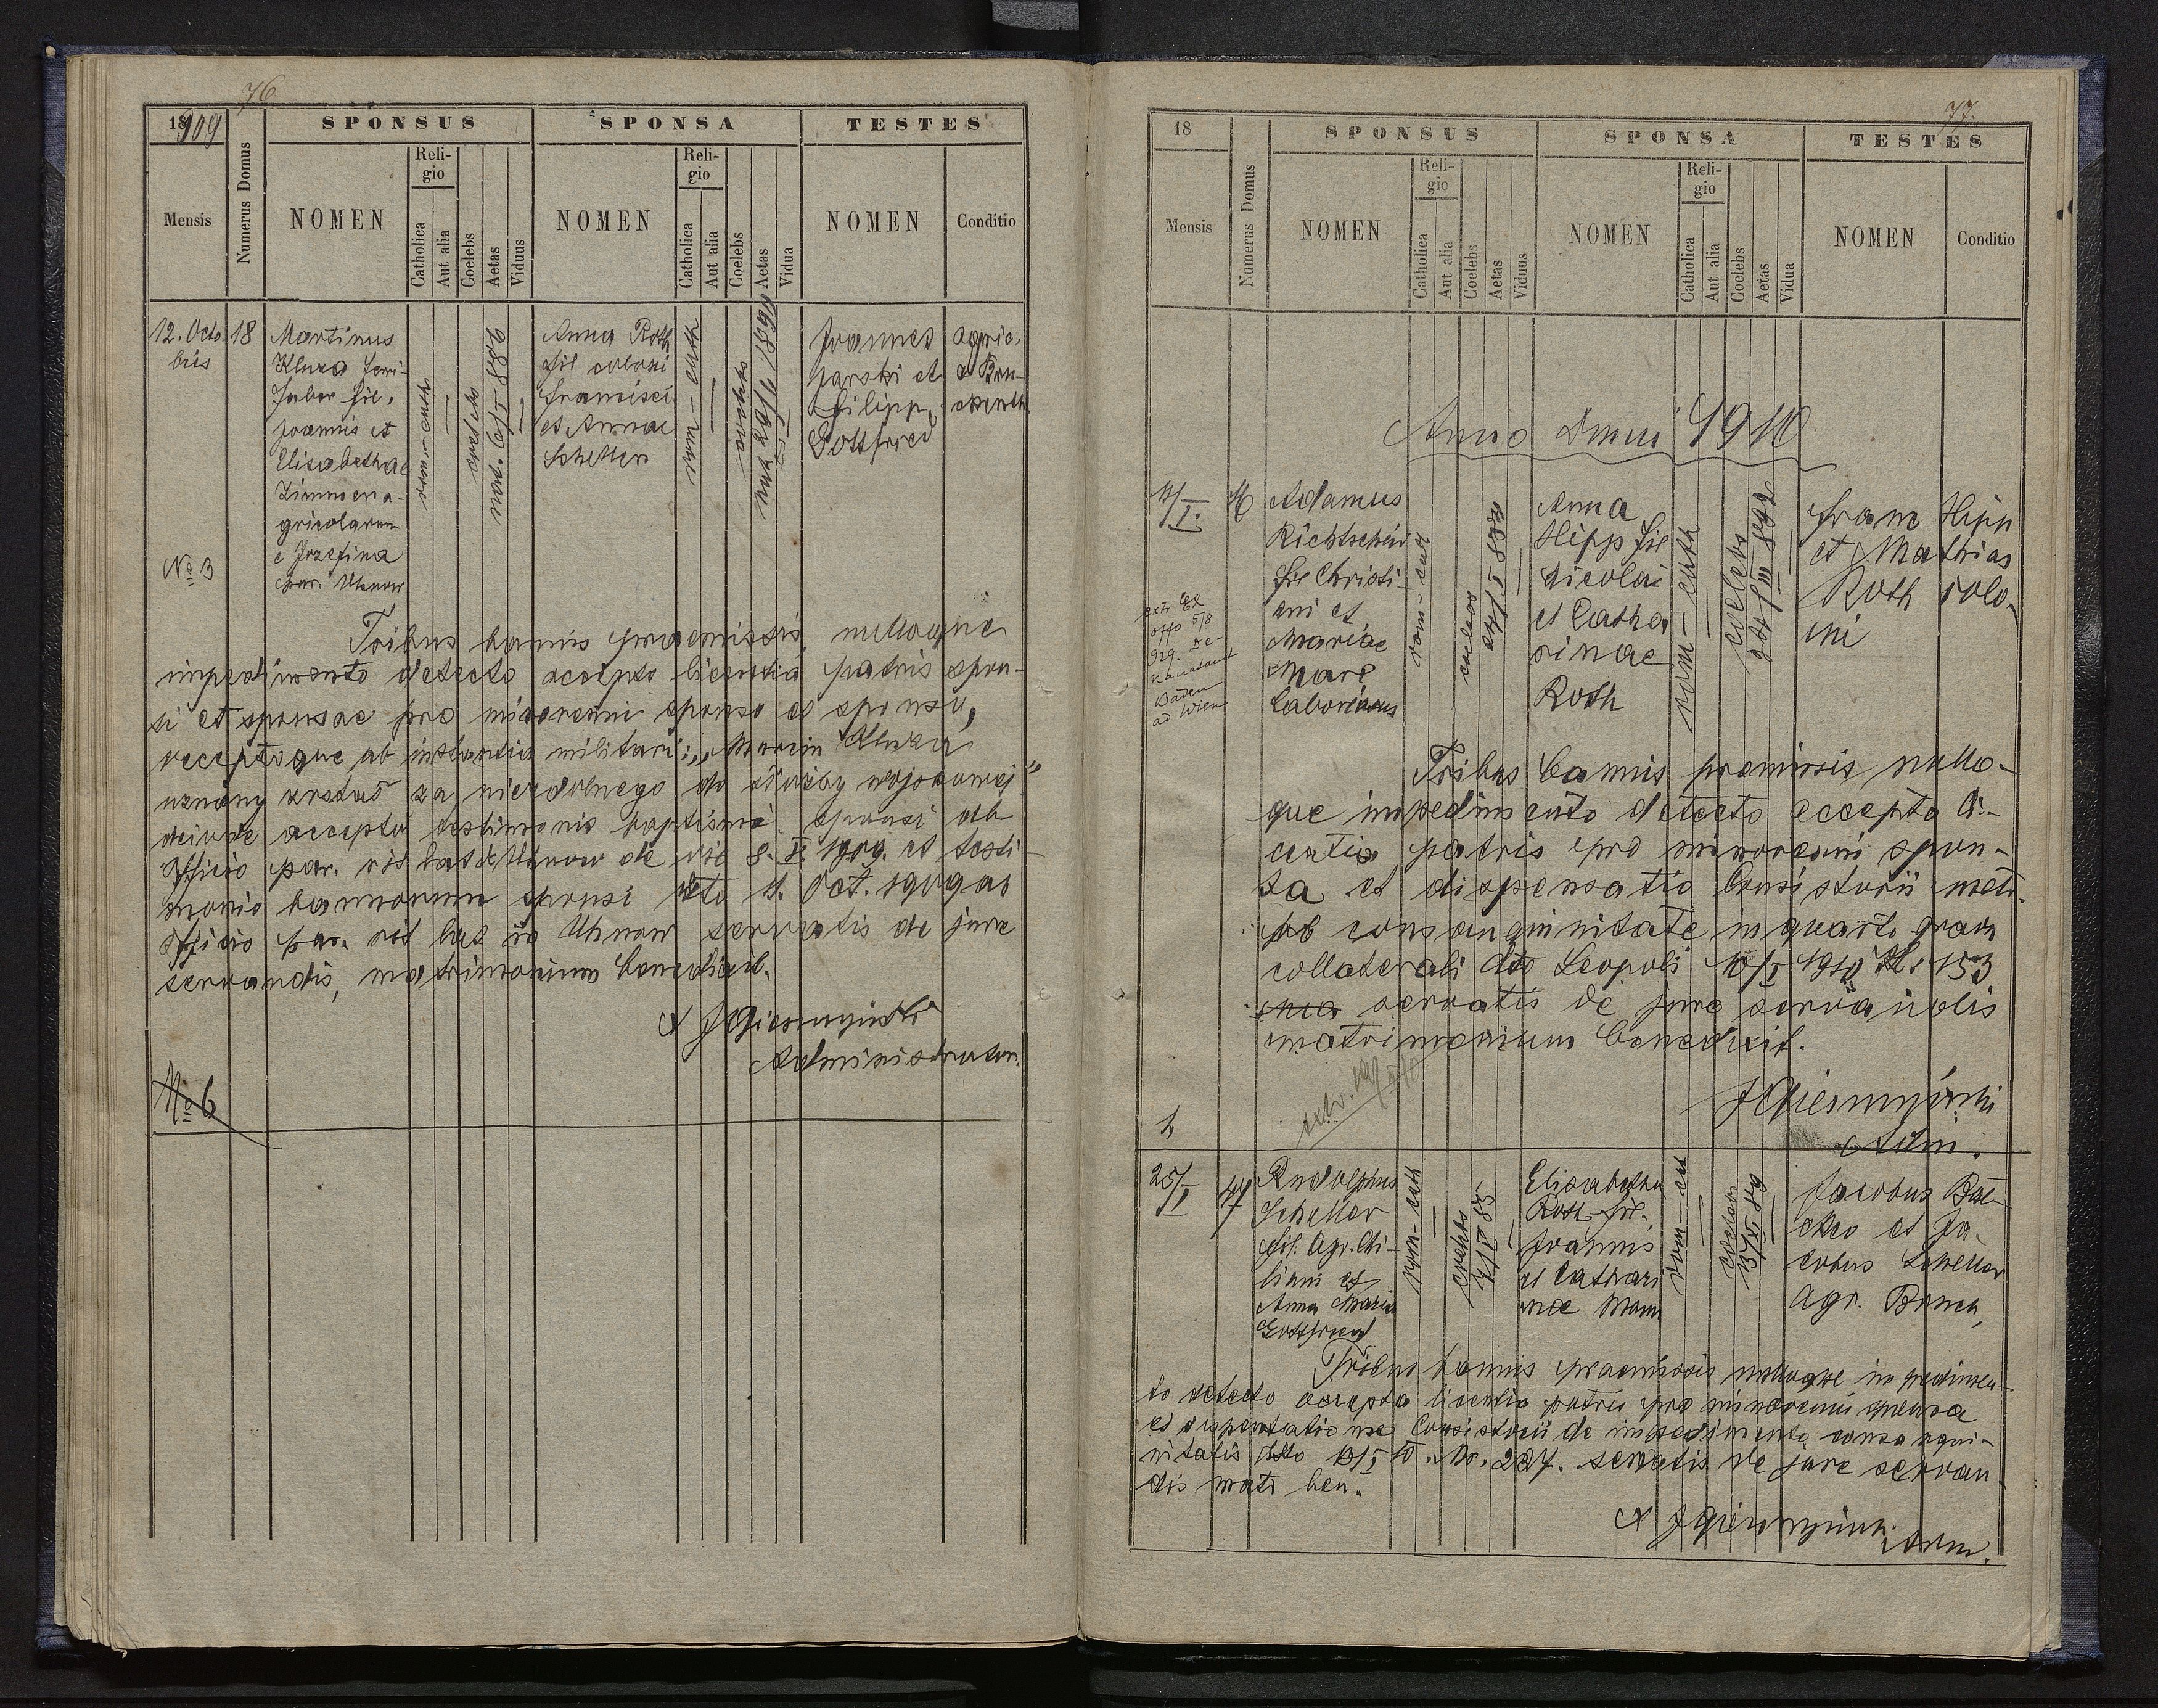 76
18909
SPONSUS
SPONSA
TESTES
Mensis
Numerus Domus
NOMEN
Religio
Catholica
Aut alia
Coelebs
Aetas
Viduus
NOMEN
Religio
Catholica
Aut alia
Coelebs
Aetas
Vidua
NOMEN
Conditio
12. Octo-
bris
18
Martinus
Kluza
faber fil.
Joannis et
Elisabethae
gricolarum
e Jozefina
par. Uhnow
rom-cath
coelebs
nat. 6/I 886
Anna Roth
fil coloni
Francisci
et Annae
Scheller
rom-cath
Joannes
et
Filipp
Gottfried
agric.
No 3
Tribus bannis praemissis, nulloque
impedimento detecto accepta licentia patris spon-
si et sponsae pro minorenni sponso et sponsa,
receptoque ab instantia militari: „Marcin Kluza
uznany został za niezdolnego do służby wojskowej"
deinde accepto testimonio baptismi sponsi ab
Officio par. rit lat de Uhnow de die 8. X. 1909. et testi-
monio bannorum sponsi dto 11. Oct. 1909 ab
officio par. rit lat in Uhnow servatis de jure
servandis, matrimonium benedixit.
Administrator.
No 6
77.
18
SPONSUS
SPONSA
TESTES
Mensis
Numerus Domus
NOMEN
Religio
Catholica
Aut alia
Coelebs
Aetas
Viduus
NOMEN
Religio
Catholica
Aut alia
Coelebs
Aetas
Vidua
NOMEN
Conditio
Anno Dmni 1910
Adamus
Richtscheid
fil Christi-
ani et
Mariae
Marc
rom-cath
coelebs
Anna
Hipp fil
Nicolai
et Catha
rinae
Roth
rom-cath
coelebs
Franc Hipp
et Mathias
Roth colo-
ni
extr Ex
offo 5/8
929. De-
kanatamt
Baden
ad Wien
Tribus bannis premissis nullo-
que impedimento detecto accepta li-
centia patris pro minorenni spon-
sa et dispensatio Consistorii metr.
ab consanguinitate in quarto gradu
collaterali dto Leopoli 10/I 1910 L: 153
servatis de jure servandis
matrimonium benedixit.
Adm.
1,
25/I
Rudolphus
Scheller
fil. agr. Chi-
liani et
Anna Maria
Gottfried
rom-cath
coelebs
Elisabetha
Roth fil.
Joannis
et Cathari
nae Mann
rom-cat
coelebs
Jacobus
et Ja-
cobus Scheller
agr.
Tribus bannis praemissis nulloque impedimen-
to detecto accepta licentia patris pro minorenni sponsa
et dispensatione Consistorii de impedimento consangui-
nitatis dto 13/I 10. No. 227. servatis de jure servan
dis matr ben.
Adm.